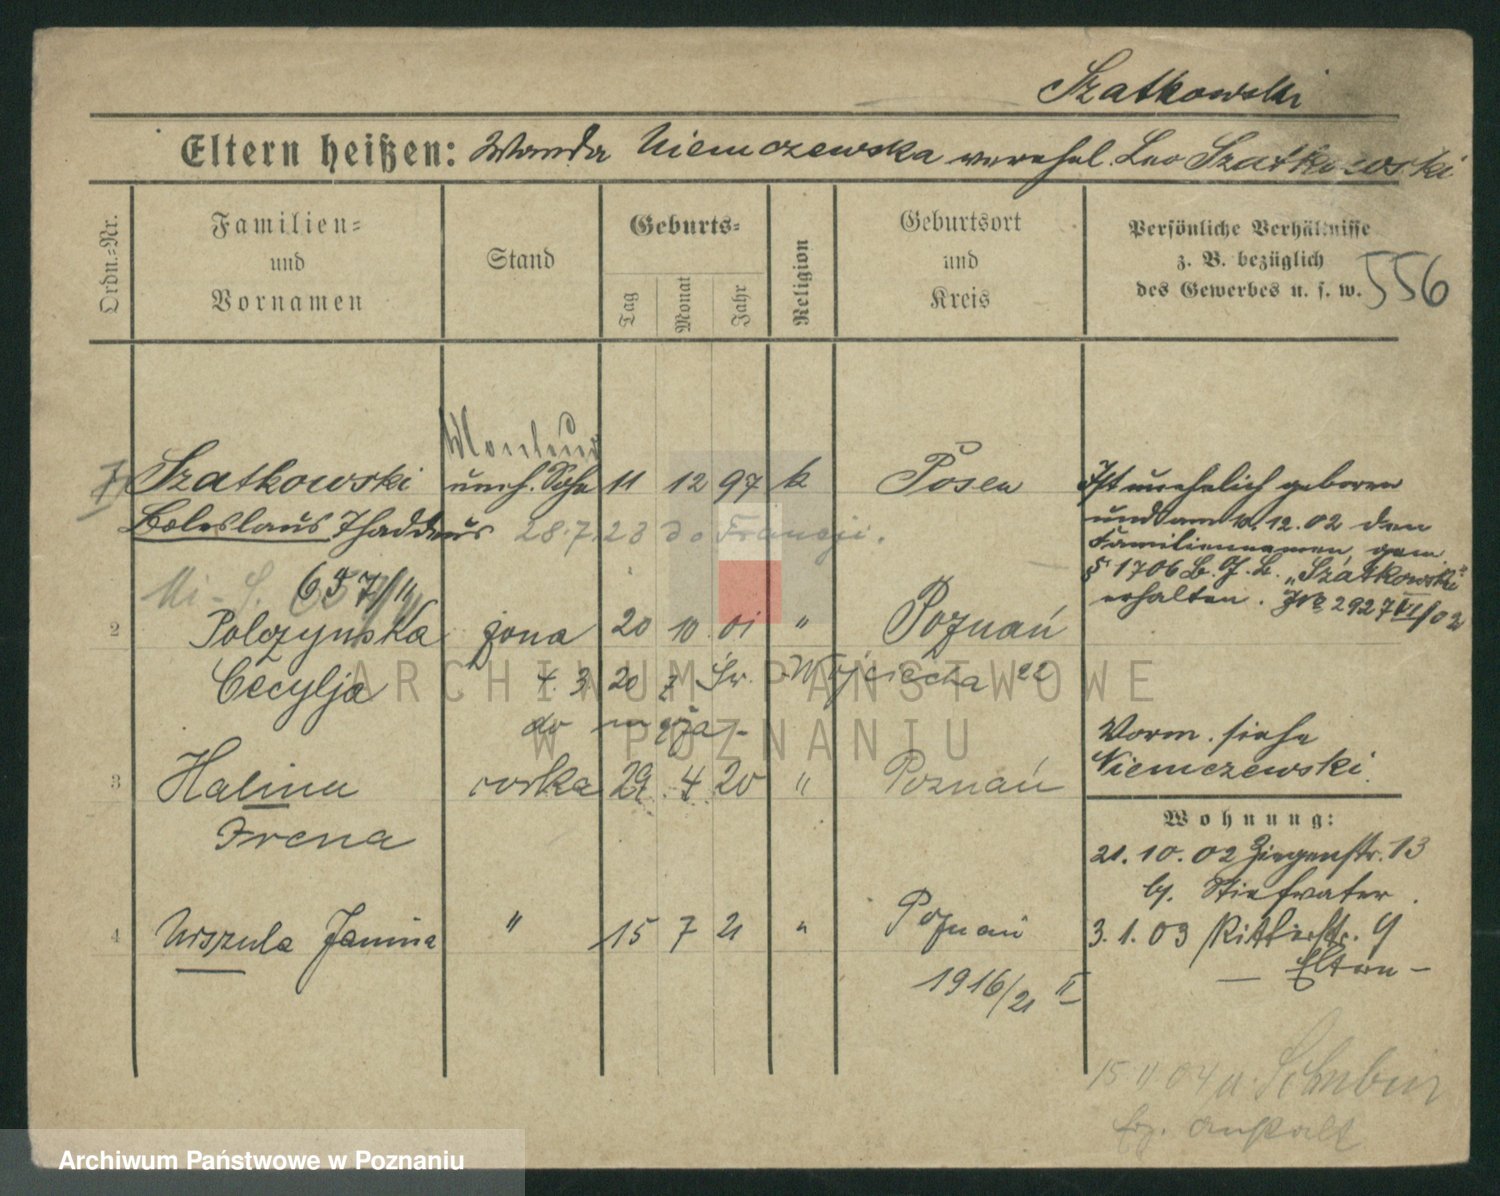 Szatkowski
Eltern heißen: Wanda Niemczewska verehel. Leo Szatkowski
Ordn.-Nr.
Familien- und Vornamen
Stand
Geburts-
Tag
Monat
Jahr
Religion
Geburtsort und Kreis
Persönliche Verhältnisse
z. B. bezüglich
des Gewerbes u. s. w.
556
Szatkowski uneh. Sohn 11 12 97 k Posen
Boleslaus Thaddeus 28.7.23 do Francji.
657/11
2 Polczynska żona 20 10 01 " Poznań
Cecylja 4. 3 20 z Św. Wojciecha 22
do męża
3 Halina córka 29 4 20 " Poznań
Irena
4 Urszula Janina " 15 7 21 " Poznań
1916/21 II
Ist unehelich geboren
und am 10.12.02 den
Familiennamen gem
§ 1706 B.G.B. „Szatkowski"
erhalten. JNo 2927 VI/02
Vorm. siehe
Niemczewski.
Wohnung:
21.10.02 Ziegenstr. 13
b. Stiefvater.
3.1.03 Ritterstr. 9
— Eltern —
15 11 04 n. Schubin
Erz. Anstalt
ARCHIWUM PAŃSTWOWE
W POZNANIU
Archiwum Państwowe w Poznaniu